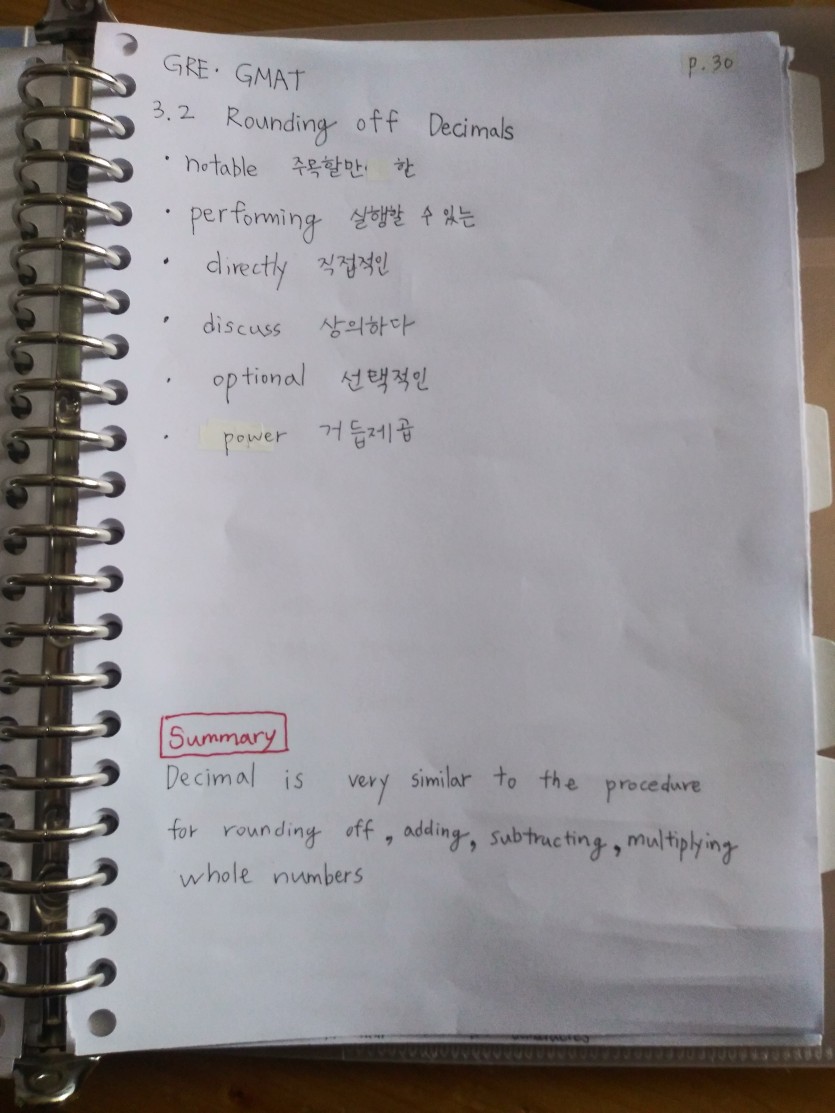 GRE· GMAT
p.30
3.2 Rounding off Decimals
· notable 주목할만 한
· performing 실행할 수 있는
· directly 직접적인
· discuss 상의하다
· optional 선택적인
· power 거듭제곱
Summary
Decimal is very similar to the procedure
for rounding off, adding, subtructing, multiplying
whole numbers